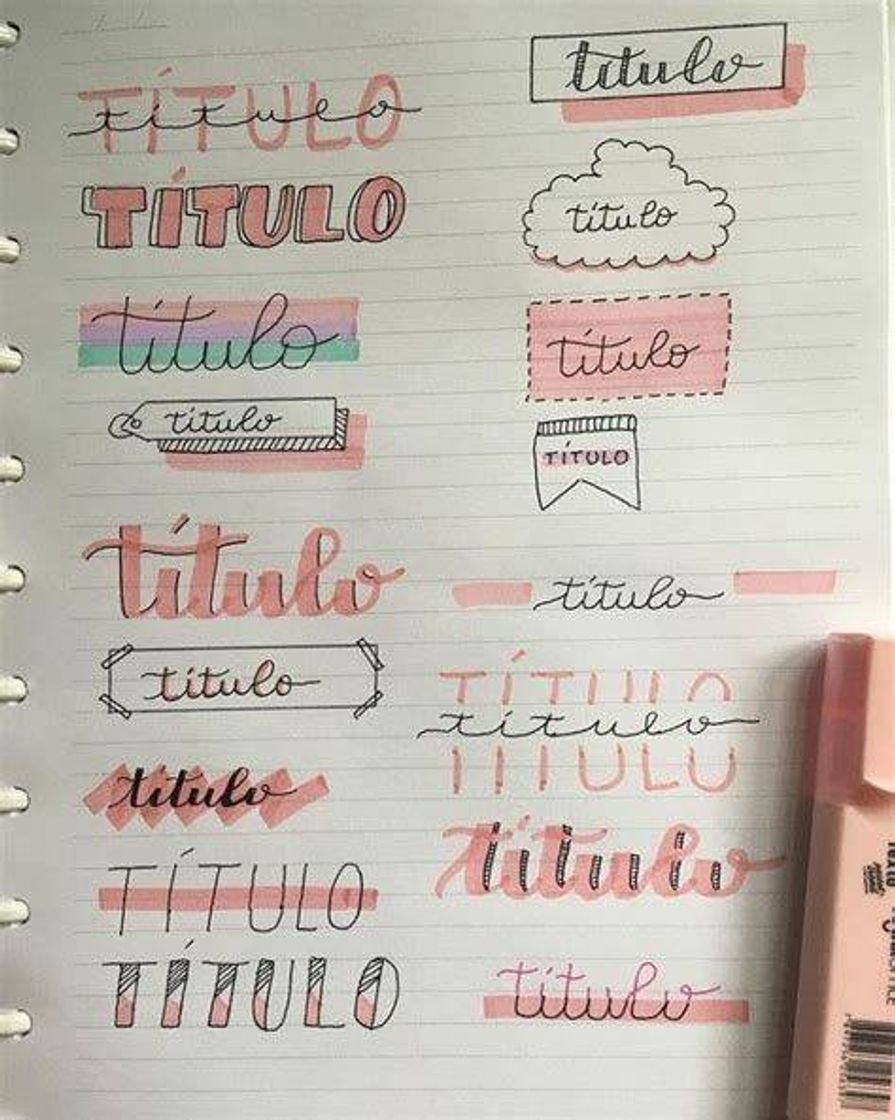 TÍTULO
título
TÍTULO
título
título
título
título
título
TÍTULO
TÍTULO
título
título
título
TÍTULO
título
TÍTULO
título
título
título